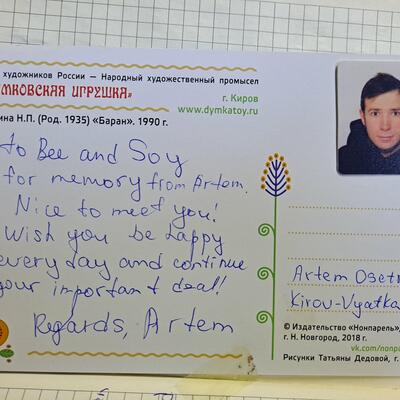 художников России — Народный художественный промысел
МКОВСКАЯ ИГРУШКА»
г. Киров
www.dymkatoy.ru
ина Н.П. (Род. 1935) «Баран». 1990 г.
to Bee and Soy
for memory from Artem.
Nice to meet you!
Wish you be happy
everyday and continue
your important deal!
Regards, Artem
Artem Osetr
Kirov-Vyatka
© Издательство «Нонпарель»,
г. Н. Новгород, 2018 г.
vk.com/nonpa
Рисунки Татьяны Дедовой, г.